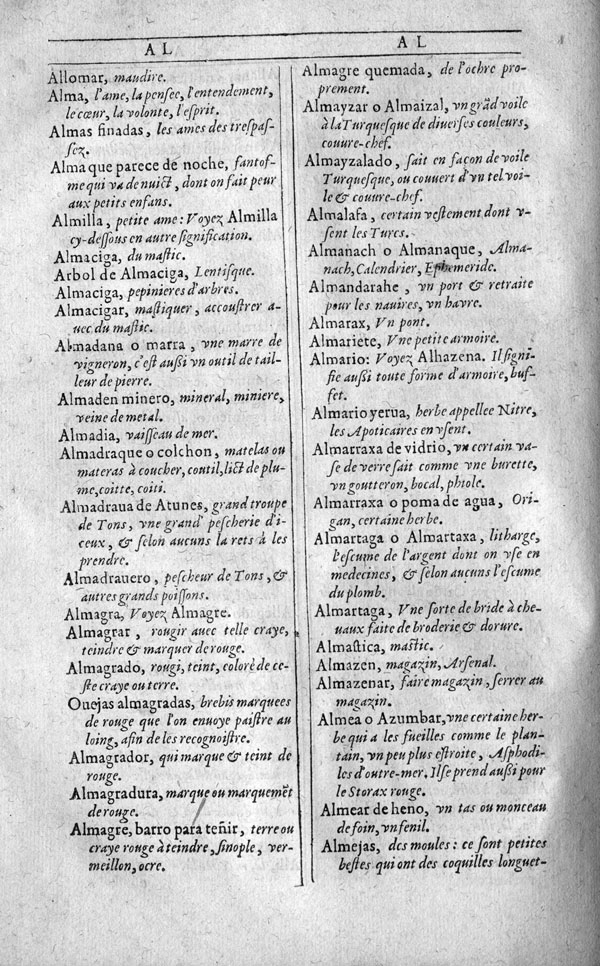 A L
Allomar, maudire.
Alma, l'ame, la pensee, l'entendement,
le cœur, la volonte, l'esprit.
Almas finadas, les ames des trespaſ-
ſez.
Alma que parece de noche, fantoſ-
me qui va de nuict, dont on fait peur
aux petits enfans.
Almilla, petite ame: Voyez Almilla
cy-deſſous en autre ſignification.
Almaciga, du maſtic.
Arbol de Almaciga, Lentiſque.
Almaciga, pepinieres d'arbres.
Almacigar, maſtiquer, accouſtrer a-
uec du maſtic.
Almadana o marra, vne marre de
vigneron, c'eſt außi vn outil de tail-
leur de pierre.
Almaden minero, mineral, miniere,
veine de metal.
Almadia, vaiſſeau de mer.
Almadraque o colchon, matelas ou
materas à coucher, coutil, lict de plu-
me, coitte, coiti.
Almadraua de Atunes, grand troupe
de Tons, vne grand' peſcherie d'i-
ceux, & ſelon aucuns la rets à les
prendre.
Almadrauero, peſcheur de Tons, &
autres grands poiſſons.
Almagra, Voyez Almagre.
Almagrar, rougir auec telle craye,
teindre & marquer de rouge.
Almagrado, rougi, teint, coloré de ce-
ſte craye ou terre.
Ouejas almagradas, brebis marquees
de rouge que l'on enuoye paiſtre au
loing, afin de les recognoiſtre.
Almagrador, qui marque & teint de
rouge.
Almagradura, marque ou marquemẽt
de rouge.
Almagre, barro para teñir, terre ou
craye rouge à teindre, ſinople, ver-
meillon, ocre.
A L
Almagre quemada, de l'ochre pro-
prement.
Almayzar o Almaizal, vn grãd voile
à la Turqueſque de diuerſes couleurs,
couure-chef.
Almayzalado, fait en façon de voile
Turqueſque, ou couuert d'vn tel voi-
le & couure-chef.
Almalafa, certain veſtement dont v-
ſent les Turcs.
Almanach o Almanaque, Alma-
nach, Calendrier, Ephemeride.
Almandarahe, vn port & retraite
pour les nauires, vn havre.
Almarax, Vn pont.
Almariete, Vne petite armoire.
Almario: Voyez Alhazena. Il ſigni-
fie außi toute forme d'armoire, buf-
fet.
Almario yerua, herbe appellee Nitre,
les Apoticaires en vſent.
Almarraxa de vidrio, vn certain va-
ſe de verre fait comme vne burette,
vn goutteron, bocal, phiole.
Almarraxo o poma de agua, Ori-
gan, certaine herbe.
Almartaga o Almartaxa, litharge,
l'eſcume de l'argent dont on vſe en
medecines, & ſelon aucuns l'eſcume
du plomb.
Almartaga, Vne ſorte de bride à che-
uaux faite de broderie & dorure.
Almaſtica, maſtic.
Almazen, magazin, Arſenal.
Almazenar, faire magazin, ſerrer au
magazin.
Almea o Azumbar, vne certaine her-
be qui a les fueilles comme le plan-
tain, vn peu plus eſtroite, Aſphodi-
les d'outre-mer. Il ſe prend außi pour
le Storax rouge.
Almear de heno, vn tas ou monceau
de foin, vn fenil.
Almejas, des moules: ce ſont petites
beſtes qui ont des coquilles longuet-